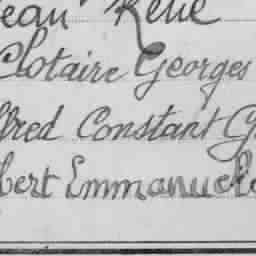 ean René
Clotaire Georges
lfred Constant G
bert Emmanuel